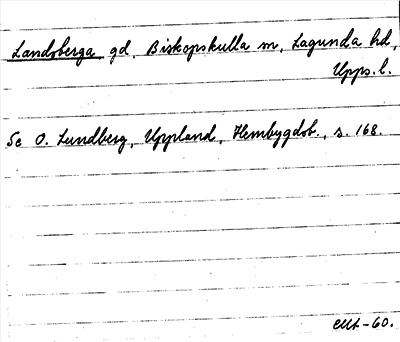 Landsberga gd, Biskopskulla sn, Lagunda hd,
Upps. l.
Se O. Lundberg, Uppland, Hembygdsb., s. 168.
-60.